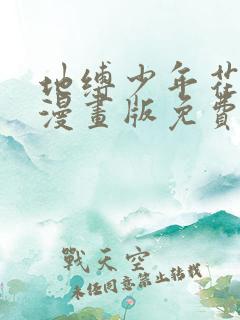 地缚少年花
漫畫版免費
戰天空
未經同意禁止轉載